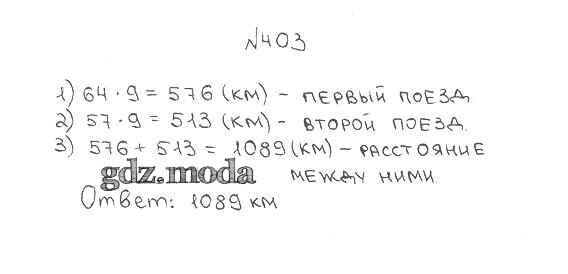 №403
1) 64 · 9 = 576 (км) – ПЕРВЫЙ ПОЕЗД.
2) 57 · 9 = 513 (км) – ВТОРОЙ ПОЕЗД.
3) 576 + 513 = 1089 (км) – РАССТОЯНИЕ
МЕЖДУ НИМИ.
gdz.moda
Ответ: 1089 км